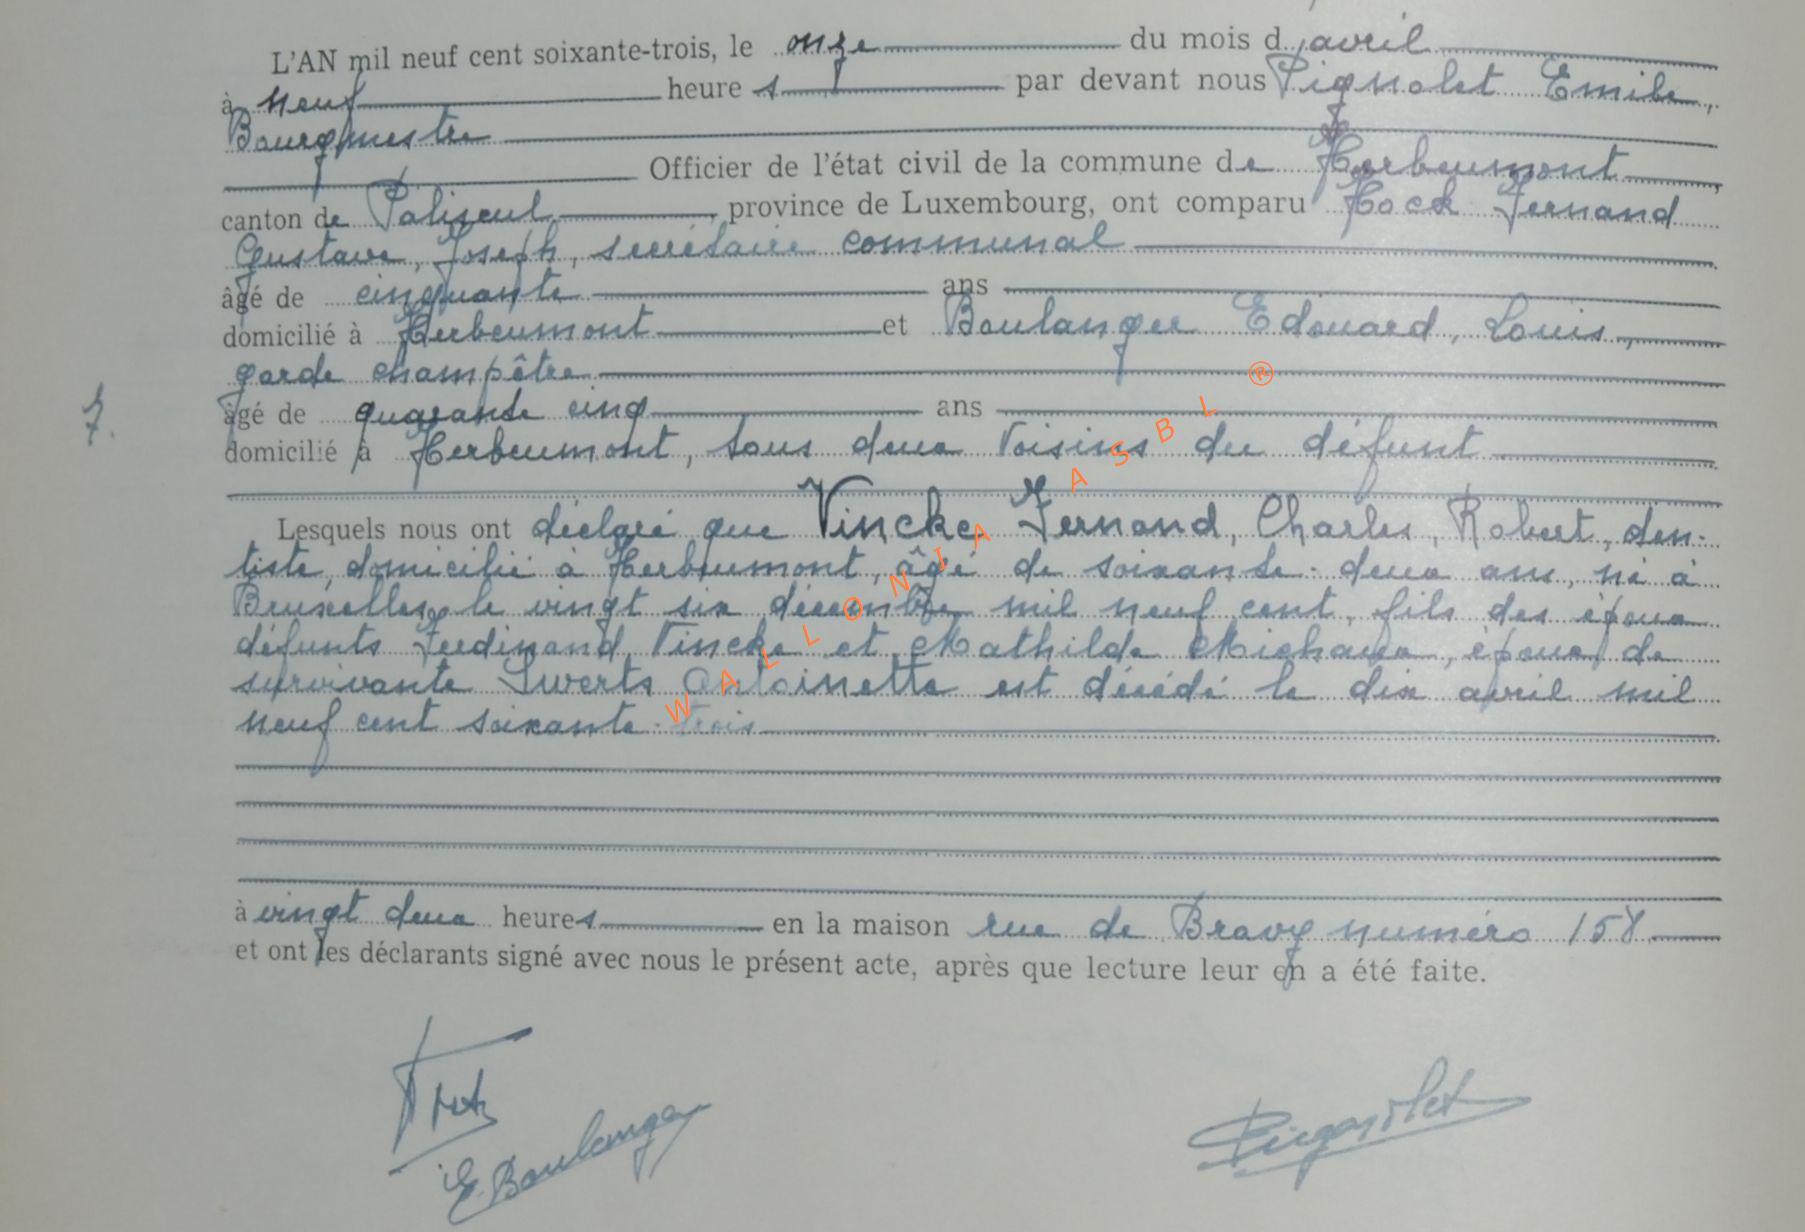 L'AN mil neuf cent soixante-trois, le onze du mois d avril
à neuf heure s par devant nous Pignolet Emile,
Bourgmestre
Officier de l'état civil de la commune de Herbeumont
canton de Paliseul, province de Luxembourg, ont comparu Hock Fernand
Gustave, Joseph, secrétaire communal
âgé de cinquante ans
domicilié à Herbeumont et Boulanger Edouard, Louis,
garde champêtre
âgé de quarante cinq ans
7.
domicilié à Herbeumont, tous deux voisins du défunt
Lesquels nous ont déclaré que Vincke Fernand, Charles, Robert, den-
tiste, domicilié à Herbeumont, âgé de soixante-deux ans, né à
Bruxelles le vingt six décembre mil neuf cent, fils des époux
défunts Ferdinand Vincke et Mathilde Michaux, époux de
survivante Swerts Antoinette est décédé le dix avril mil
neuf cent soixante-trois
à vingt deux heures en la maison rue de Bravy numéro 158
et ont les déclarants signé avec nous le présent acte, après que lecture leur en a été faite.
E. Boulanger
Pignolet
WALLONIA ASBL ®